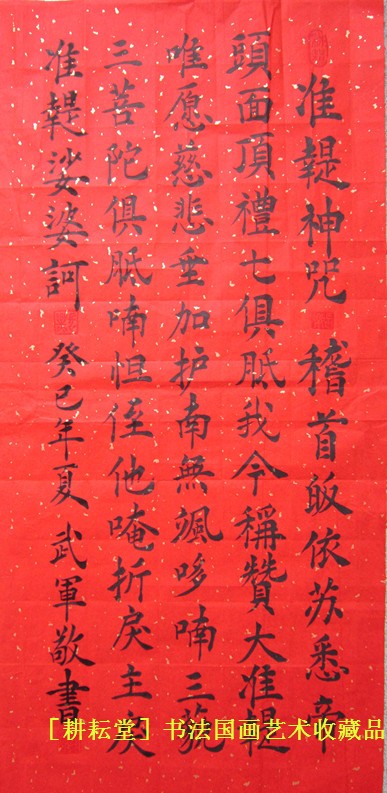 准鞮神咒 稽首皈依苏悉帝
頭面頂禮七俱胝我今稱贊大准提
唯愿慈悲垂加护南無颯哆喃三藐
三菩陀俱胝喃怛侄他唵折戾主戾
准鞮娑婆訶 癸巳年夏 武軍敬書
［耕耘堂］书法国画艺术收藏品